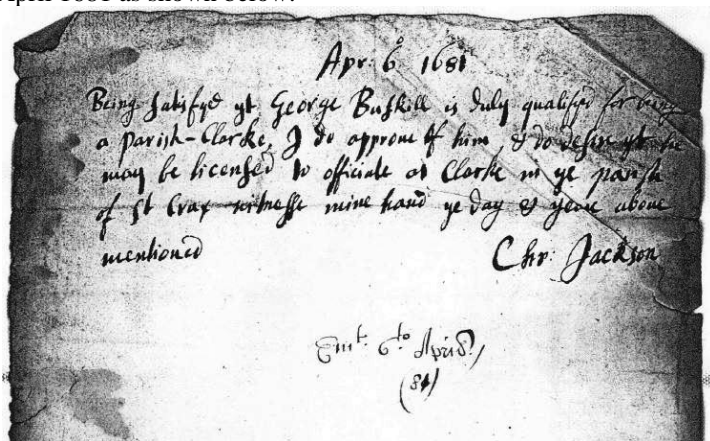 April 1681 as shown below.
Apr. 6° 1681
Being satisfyed yt George Buskill is duly qualifyd for being
a parish-Clarke, I do approve of him, & do desire yt he
may be licensed to officiate as Clarke in ye parish
of St Crux witnesse mine hand ye day & yeare above
mentioned
Chr. Jackson
6to Aprilis
(81)